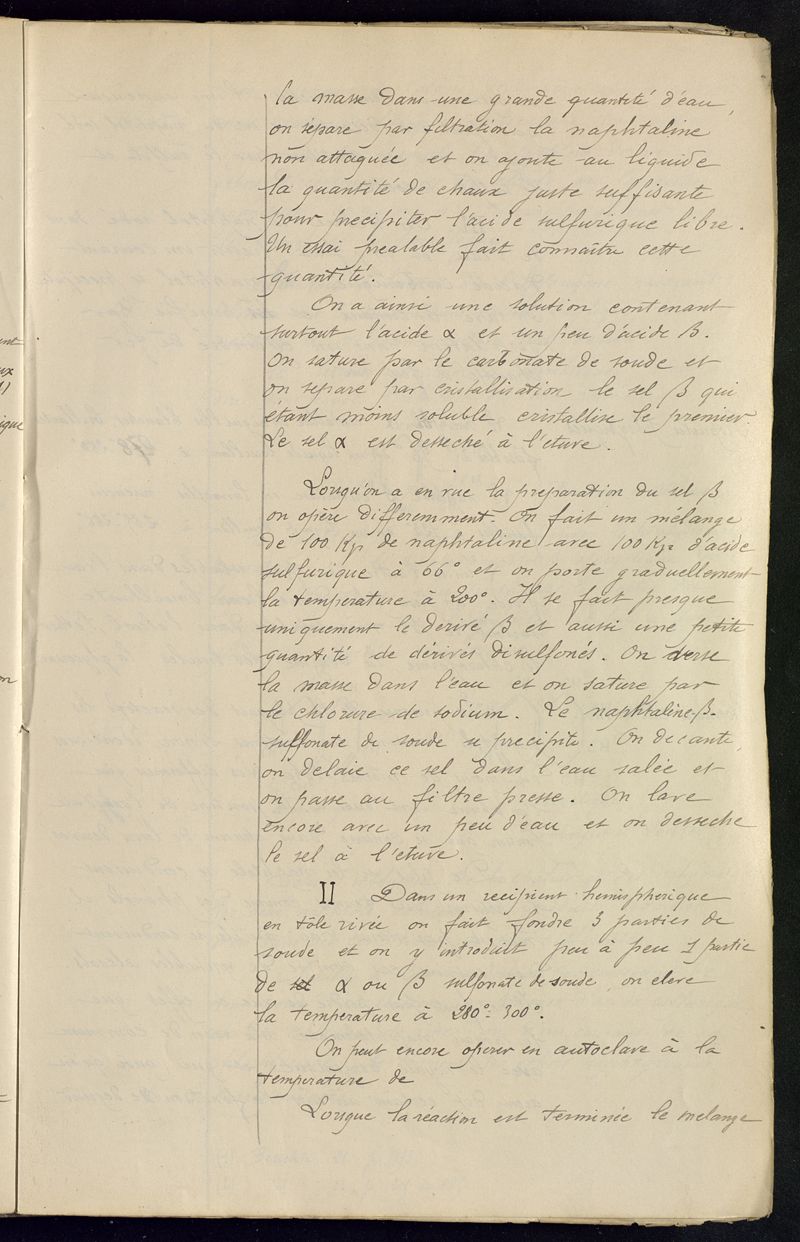 la masse dans une grande quantité d'eau,
on sépare par filtration la naphtaline
non attaquée et on ajoute au liquide
la quantité de chaux juste suffisante
pour precipiter l'acide sulfurique libre.
Un essai prealable fait connaître cette
quantité.
On a ainsi une solution contenant
surtout l'acide α et un peu d'acide β.
On sature par le carbonate de soude et
on separe par cristallisation le sel β qui
étant moins soluble cristallise le premier.
Le sel α est desseché à l'etuve.
Lorsqu'on a en vue la preparation du sel β
on opère differemment. On fait un mélange
de 100 Kgr de naphtaline avec 100 Kgr d'acide
sulfurique à 66° et on porte graduellement
la temperature à 200°. Il se fait presque
uniquement le derivé β et aussi une petite
quantité de dérivés disulfonés. On verse
la masse dans l'eau et on sature par
le chlorure de sodium. Le naphtaline-β-
sulfonate de soude se precipite. On decante,
on delaie ce sel dans l'eau salée et
on passe au filtre presse. On lave
encore avec un peu d'eau et on desseche
le sel à l'etuve.
II Dans un recipient hemispherique
en tôle rivée on fait fondre 3 parties de
soude et on y introduit peu à peu 1 partie
de sel α ou β sulfonate de soude, on eleve
la temperature à 280°-300°.
On peut encore operer en autoclave à la
temperature de
Lorsque la réaction est terminée le melange